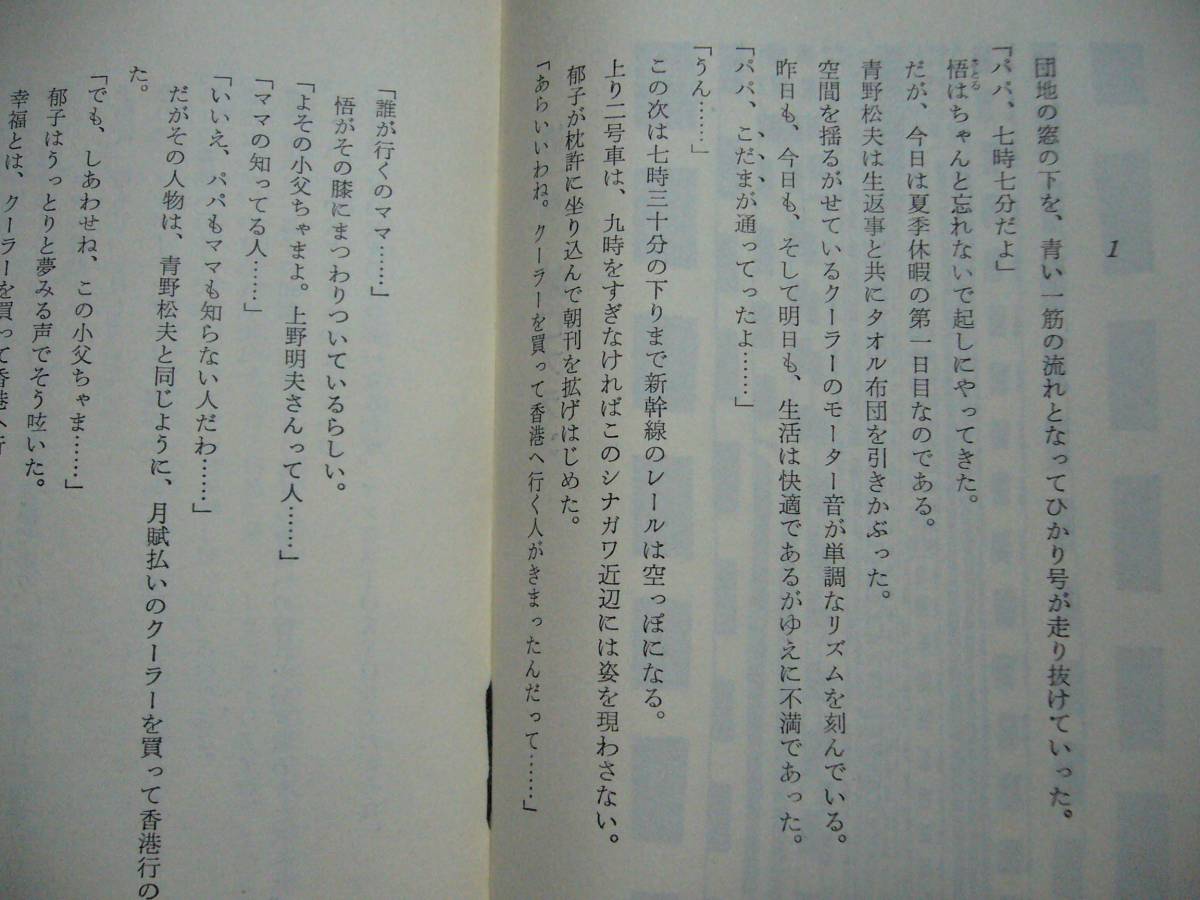 1
団地の窓の下を、青い一筋の流れとなってひかり号が走り抜けていった。
「パパ、七時七分だよ」
悟はちゃんと忘れないで起しにやってきた。
さとる
だが、今日は夏季休暇の第一日目なのである。
青野松夫は生返事と共にタオル布団を引きかぶった。
空間を揺るがせているクーラーのモーター音が単調なリズムを刻んでいる。
昨日も、今日も、そして明日も、生活は快適であるがゆえに不満であった。
「パパ、こだまが通ってったよ……」
「うん……」
この次は七時三十分の下りまで新幹線のレールは空っぽになる。
上り二号車は、九時をすぎなければこのシナガワ近辺には姿を現わさない。
郁子が枕許に坐り込んで朝刊を拡げはじめた。
「あらいいわね。クーラーを買って香港へ行く人がきまったんだって……」
「誰が行くのママ……」
悟がその膝にまつわりついているらしい。
「よその小父ちゃまよ。上野明夫さんって人……」
「ママの知ってる人……」
「いいえ、パパもママも知らない人だわ……」
だがその人物は、青野松夫と同じように、月賦払いのクーラーを買って香港行の
た。
「でも、しあわせね、この小父ちゃま……」
郁子はうっとりと夢みる声でそう呟いた。
幸福とは、クーラーを買って香港へ行